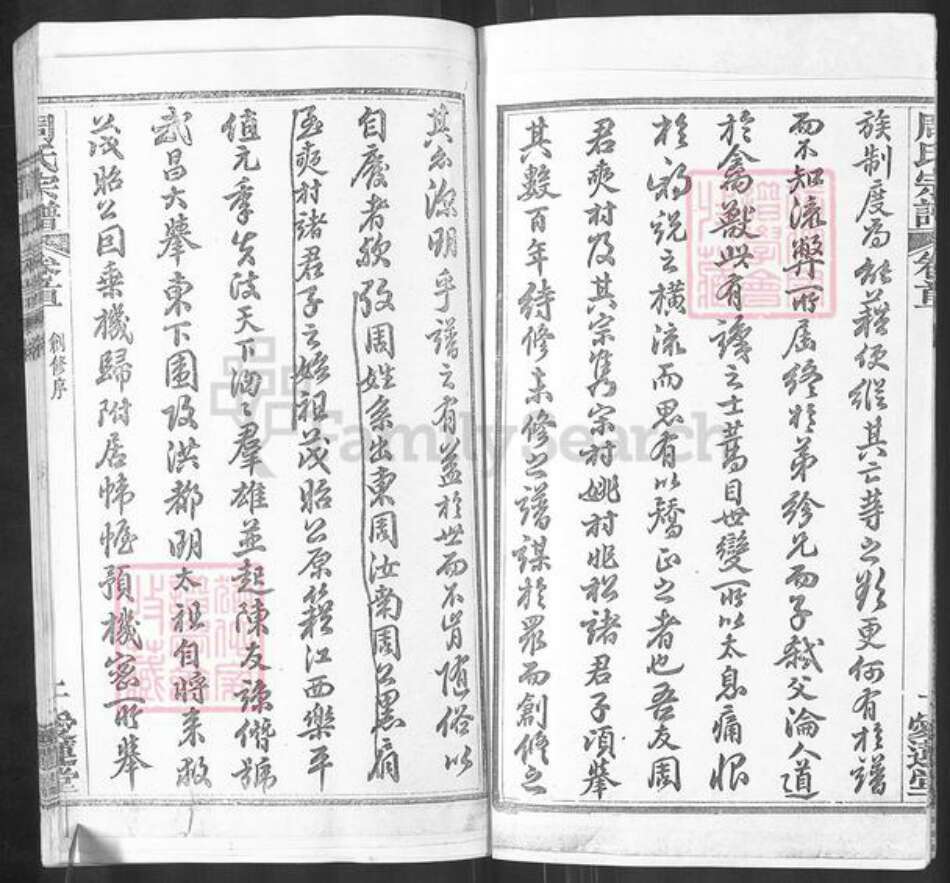 周氏宗譜 卷首
族制度為
而不知流弊所屆終於弟紾兄而子弒父淪人道
於禽獸此有識之士蒿目世變所以太息痛恨
於之橫流而思有以矯正之者也吾友周
君爽村及其宗雋宗村姚村兆松諸君子頃舉
其數百年待修未修之譜謀於眾而創修之
愛蓮堂
其分源明乎譜之有益於世而不肯隨俗以
自廢者歟攷周姓系出東周汝南周公黑肩
爽村諸君子之始祖茂昭公原籍江西樂平
值元季失政天下洶々羣雄並起陳友諒僭號
武昌大舉東下圍攻洪都明太祖自將來救
茂昭公回乘機歸附居帷幄預機密所舉
周氏宗譜 卷首 創修序 二 愛蓮堂
FamilySearch